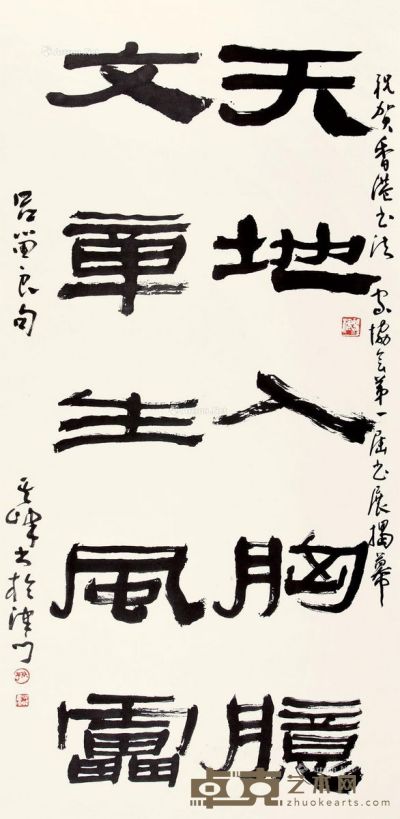 祝贺香港书法家协会第一届书展揭幕
天地入胸臆
文章生风雷
吕留良句
其峰书于津门
卓克艺术网
zhuokearts.com